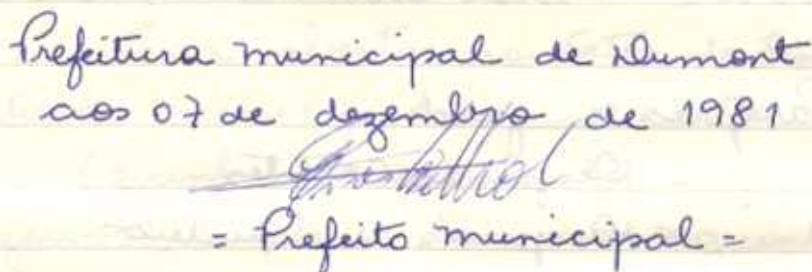 Prefeitura municipal de Dumont
aos 07 de dezembro de 1981
= Prefeito municipal =